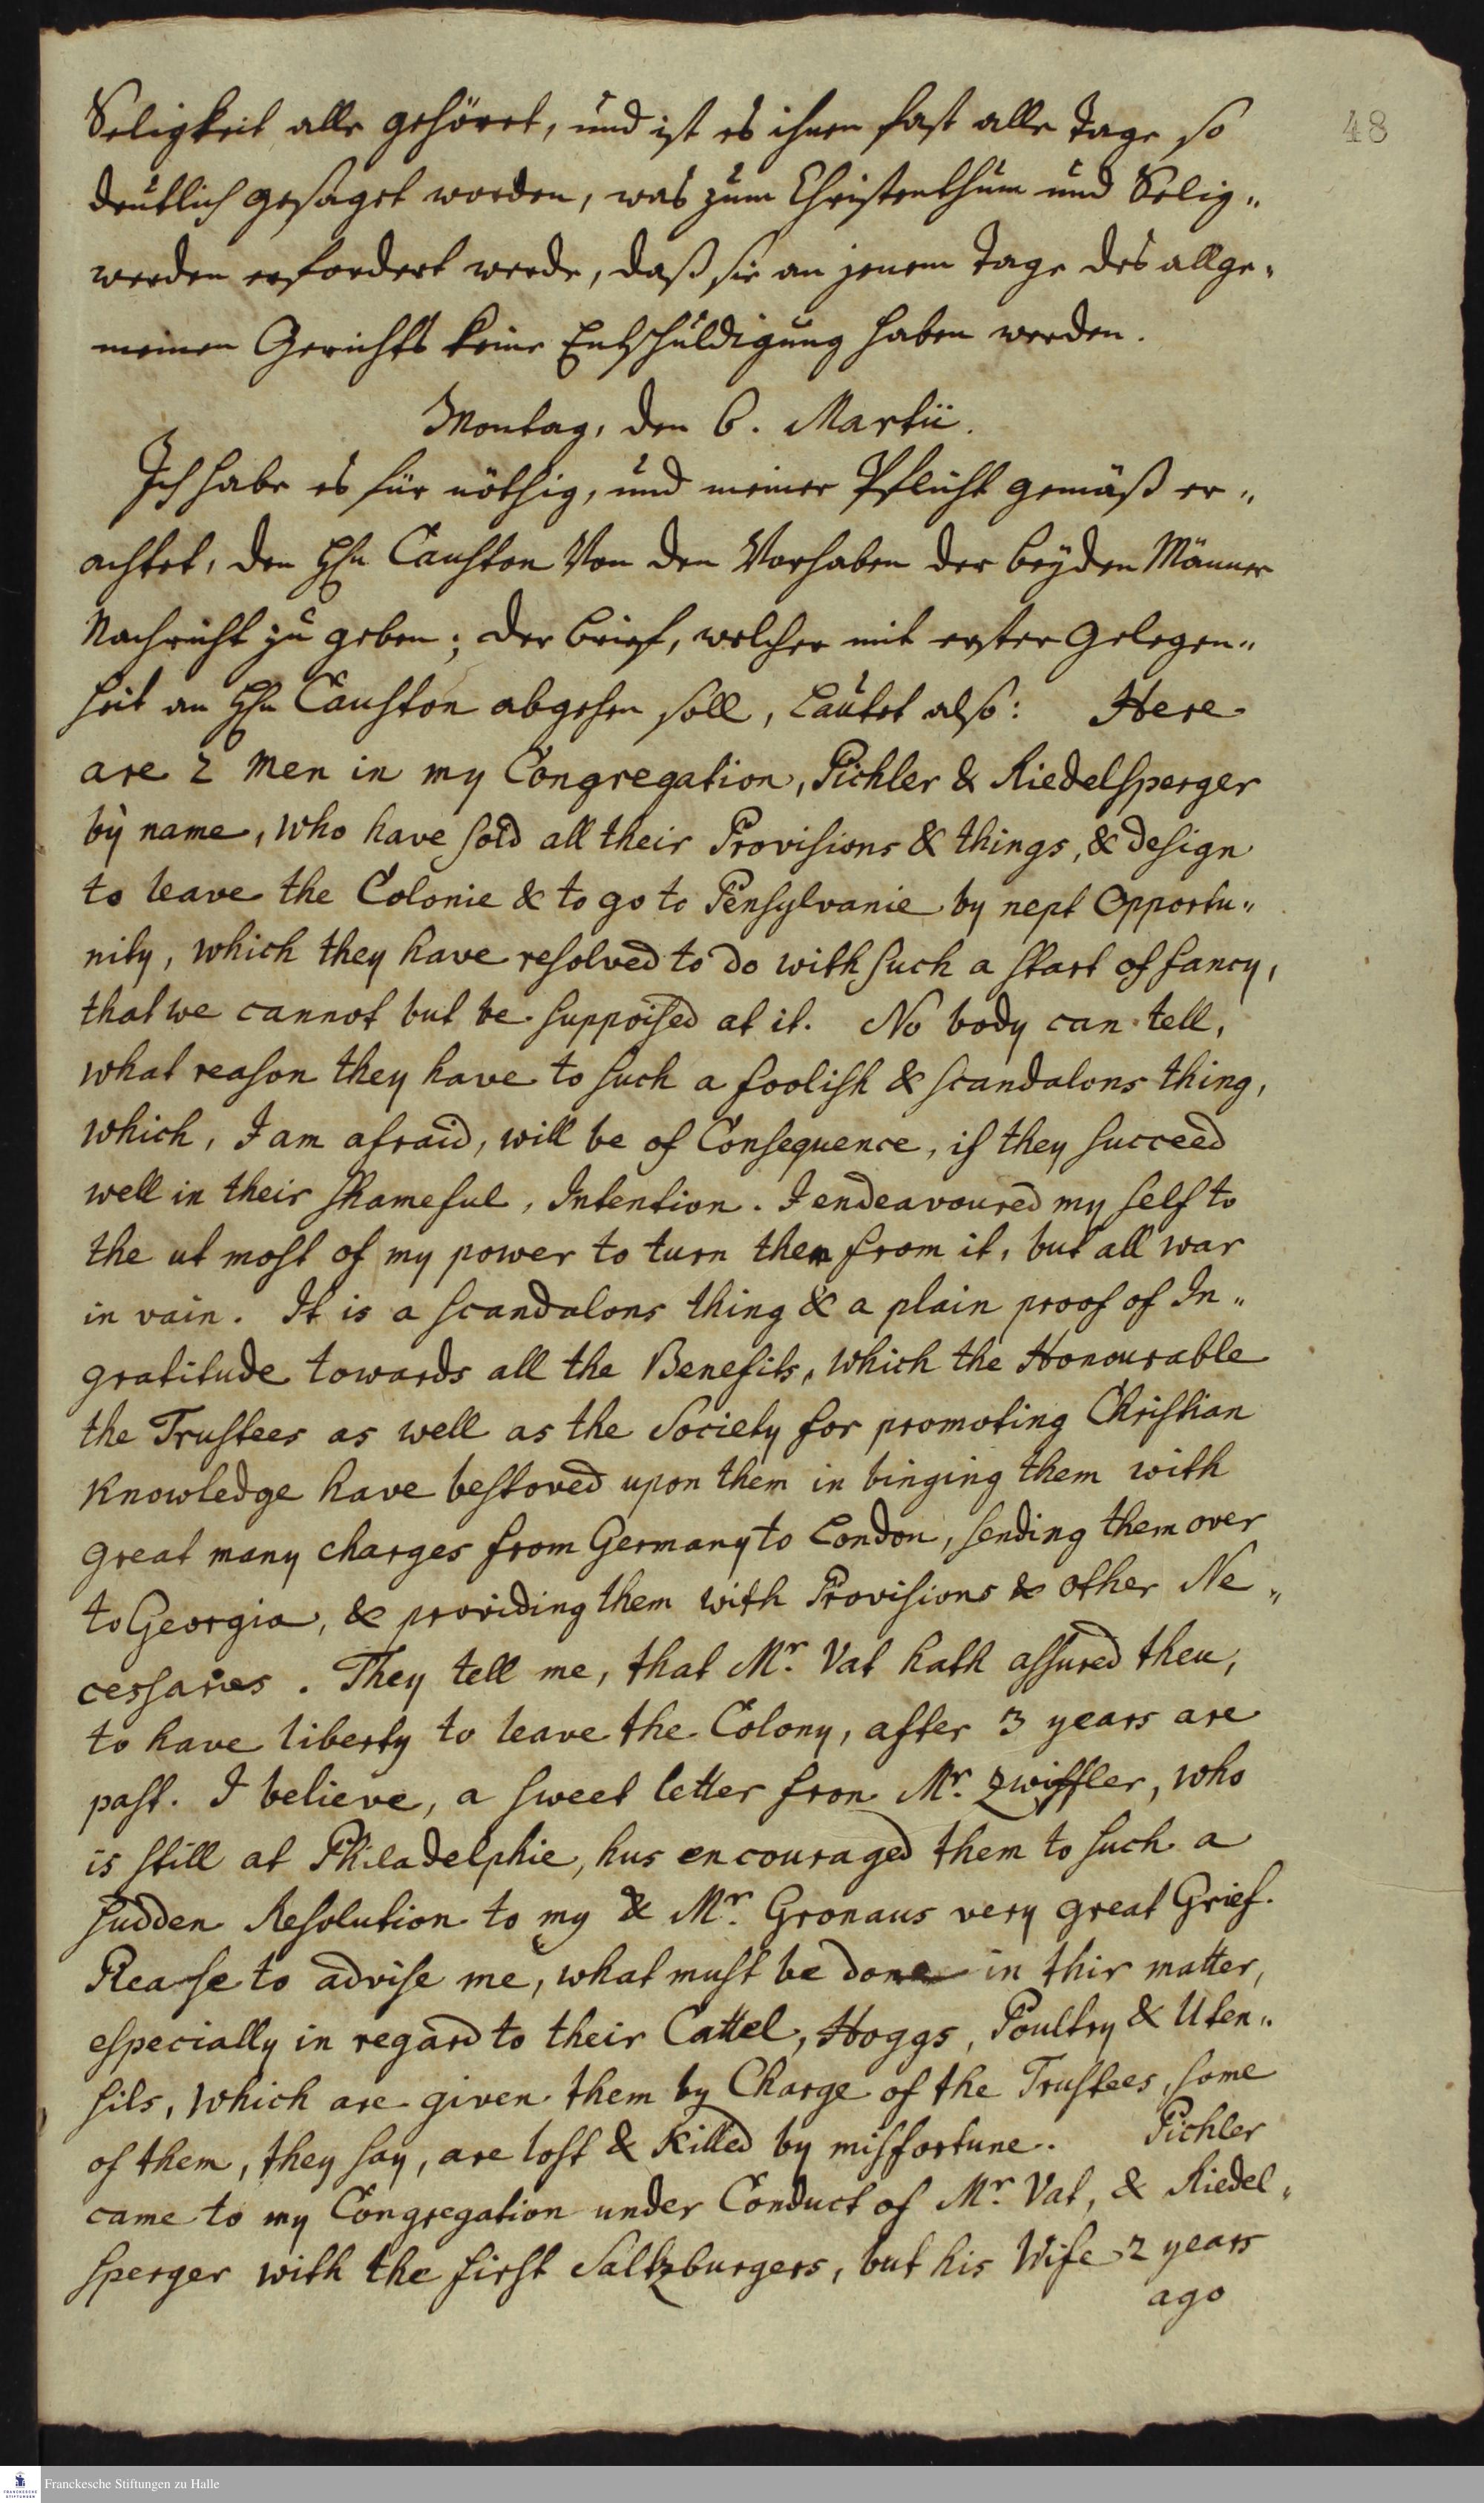 48
Seligkeit alle gehöret, und ist es ihnen fast alle Tage so
deutlich gesaget worden, was zum Christenthum und Selig„
werden erfordert werde, daß sie an jenem Tage des allge„
meinen Gerichts keine Entschuldigung haben werden.
Montag, den 6. Martii.
Ich habe es für nöthig, und meiner Pflicht gemäß er„
achtet, den Hn Causton Von den Vorhaben der beyden Männer
Nachricht zu geben; der Brief, welcher mit erster Gelegen„
heit an Hn Causton abgehen soll, Lautet also: Here
are 2 Men in my Congregation, Pichler & Riedelsperger
by name, who have sold all their Provisions & things, & design
to leave the Colonie & to go to Pensylvanie by nept Opportu„
nity, which they have resolved to do with such a start of fancy,
that we cannot but be suppoised at it. No body can tell,
what reason they have to such a foolish & scandalons thing,
which, I am afraid, will be of Consequence, if they succeed
well in their shameful, Intention. I endeavoured my self to
the ut most of my power to turn them from it, but all war
in vain. It is a scandalons thing & a plain proof of In„
gratitude towards all the Benefits, which the Honourable
the Trustees as well as the Society for promoting Christian
Knowledge have bestoved upon them in binging them with
great many charges from Germany to London, sending them over
to Georgia, & providing them with Provisions & other Ne„
cessaries. They tell me, that Mr. Vat hath assured theu,
to have liberty to leave the Colony, after 3 years are
past. I believe, a sweet letter fron Mr. Zwiffler, who
is still at Philadelphie, hus encouraged them to such a
sudden Resolution to my & Mr. Gronaus very great Grief.
Please to advise me, what must be done in thir matter,
especially in regard to their Cattel, Hoggs, Poultry & Uten„
sils, which are given them by Charge of the Trustees, some
of them, they say, are lost & Killed by misfortune. Pichler
came to my Congregation under Conduct of Mr. Vat, & Riedel„
sperger with the first Saltzburgers, but his Wife 2 years
ago
Franckesche Stiftungen zu Halle
FRANCKESCHE STIFTUNGEN